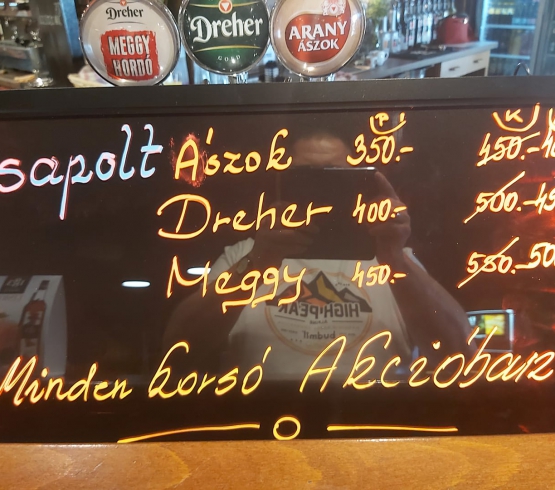 Dreher
MEGGY
HORDÓ
Dreher
GOLD
ARANY
ÁSZOK
P K
sapolt Ászok 350.- 450.-
Dreher 400.- 500.-
Meggy 450.- 550.-
HIGH PEAK
Minden korsó Akcióban